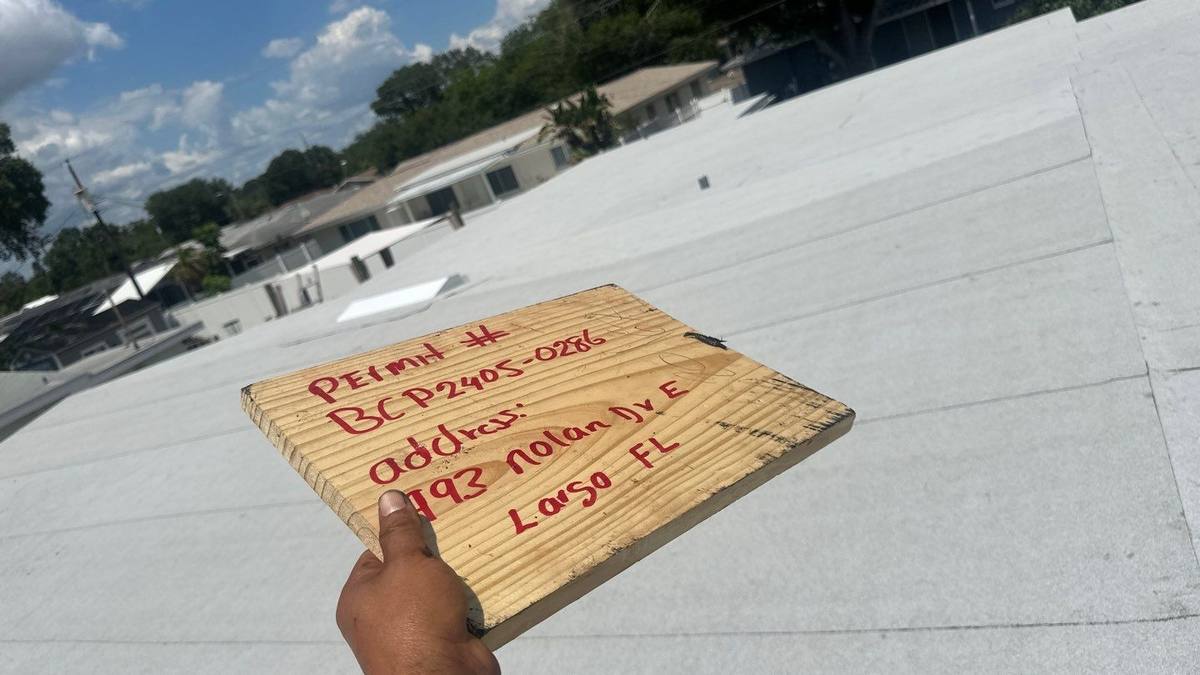 Permit #
BCP2405-0286
address:
993 Nolan Dr E
Largo FL